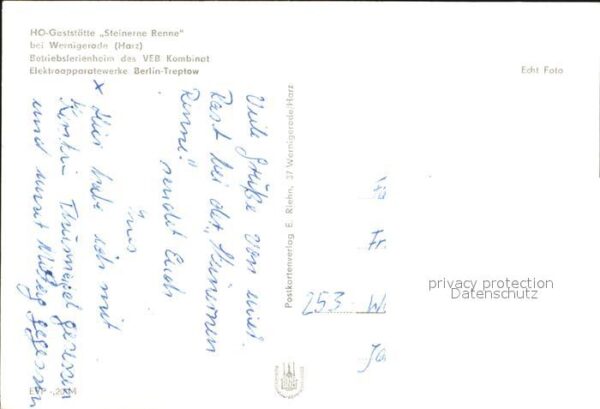 HO-Gaststätte „Steinerne Renne"
bei Wernigerode (Harz)
Betriebsferienheim des VEB Kombinat
Elektroapparatewerke Berlin-Treptow
Echt Foto
Viele Grüße von einer
Rast bei der „Steinernen
Renne" sendet Euch
x Hier habe ich mit
Kerstin gesessen
und unser Mittag gegessen
Postkartenverlag E. Riehn, 37 Wernigerode/Harz
Fr
253
privacy protection
Datenschutz
EVP -,20 M